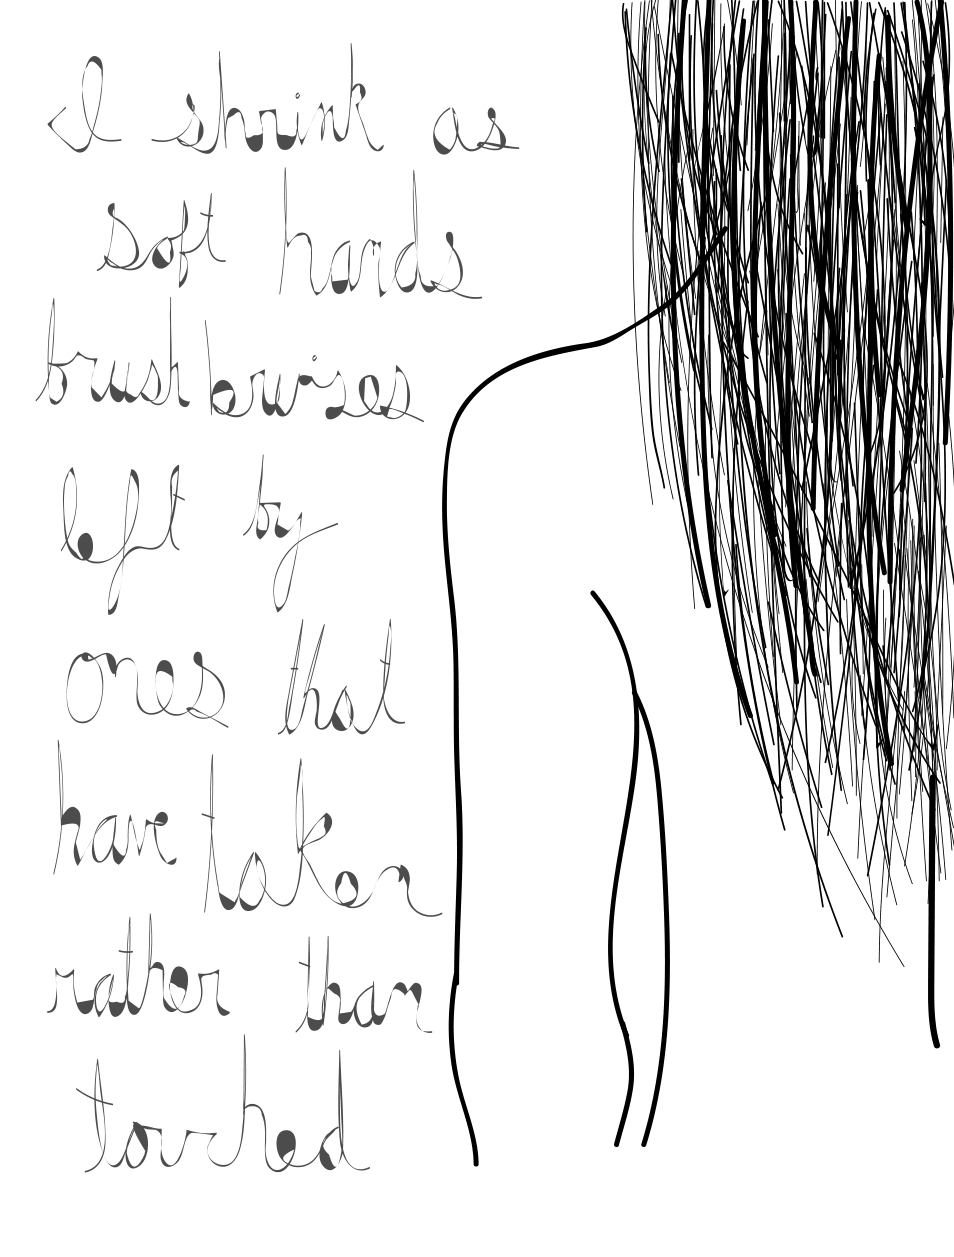 I shrink as
soft hands
brush bruises
left by
ones that
have taken
rather than
touched